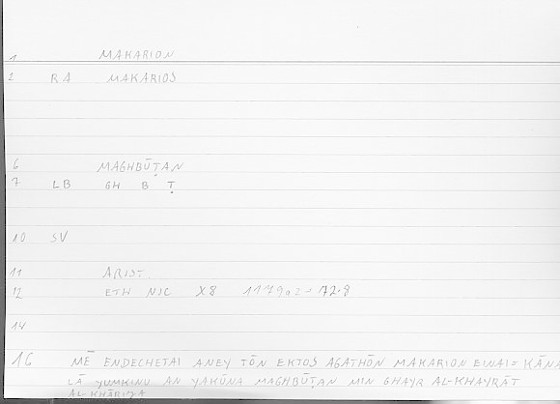 1 MAKARION
2 RA MAKARIOS
6 MAGHBŪṬAN
7 LB GH B Ṭ
10 SV
11 ARIST.
12 ETH NIC X8 1179a2 = 72.8
14
16 MĒ ENDECHETAI ANEY TŌN EKTOS AGATHŌN MAKARION EINAI = KĀNA
LĀ YUMKINU AN YAKŪNA MAGHBŪṬAN MIN GHAYR AL-KHAYRĀT
AL-KHĀRIJA